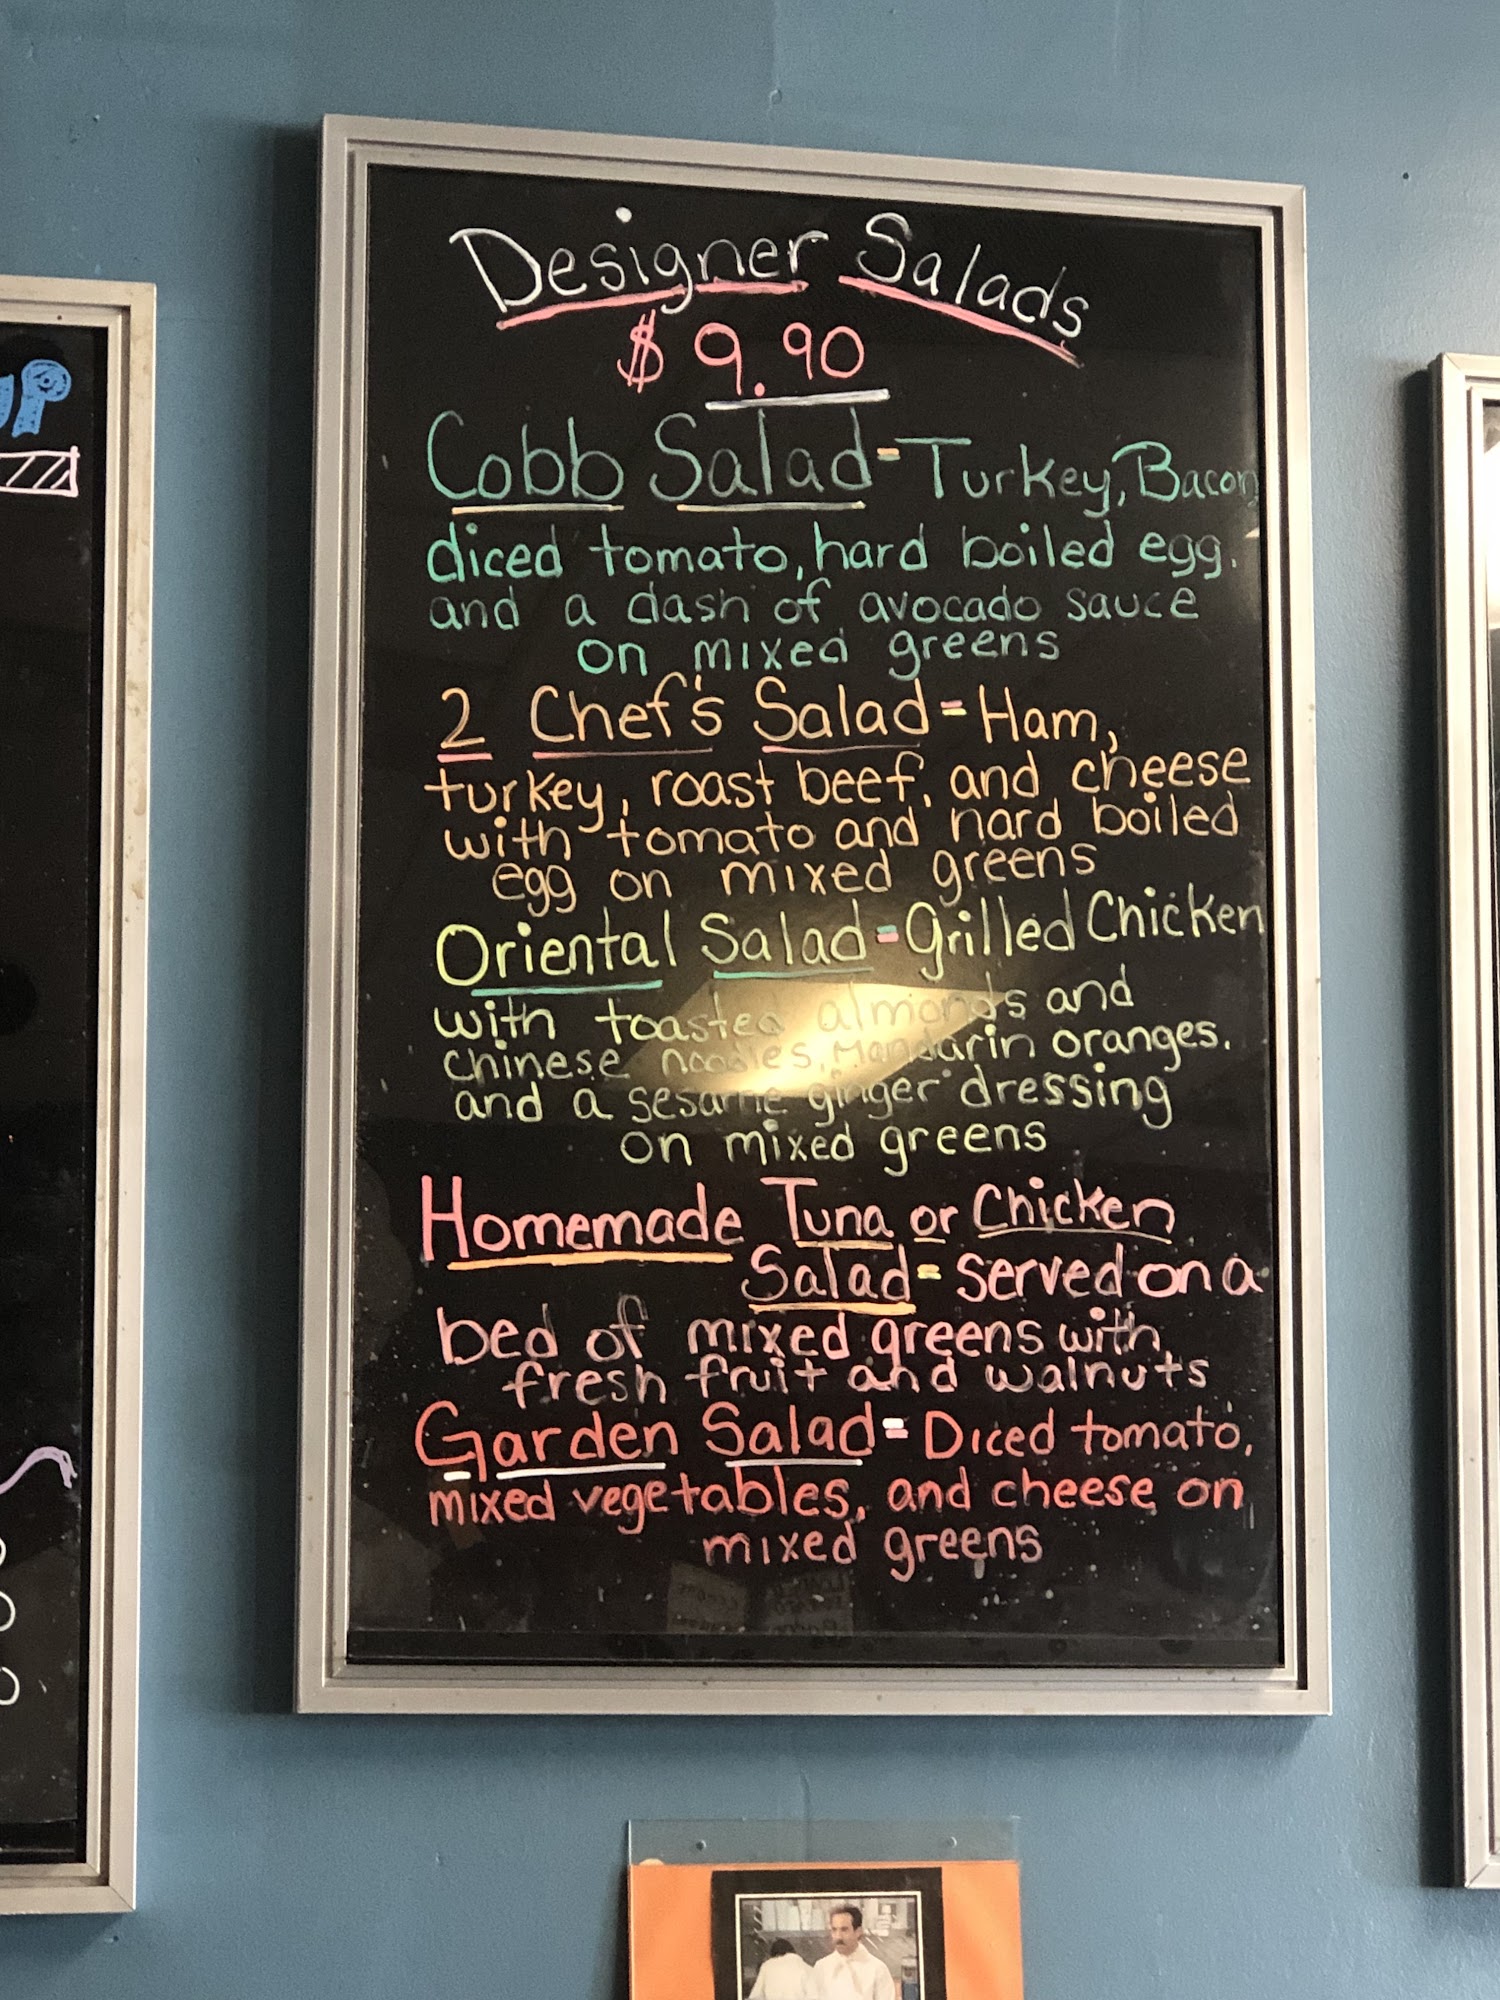 Designer Salads
$ 9.90
Cobb Salad = Turkey, Bacon,
diced tomato, hard boiled egg,
and a dash of avocado sauce
on mixed greens
2 Chef's Salad = Ham,
turkey, roast beef, and cheese
with tomato and hard boiled
egg on mixed greens
Oriental Salad = Grilled Chicken
with toasted almonds and
chinese noodles, Mandarin oranges,
and a sesame ginger dressing
on mixed greens
Homemade Tuna or Chicken
Salad = served on a
bed of mixed greens with
fresh fruit and walnuts
Garden Salad = Diced tomato,
mixed vegetables, and cheese on
mixed greens